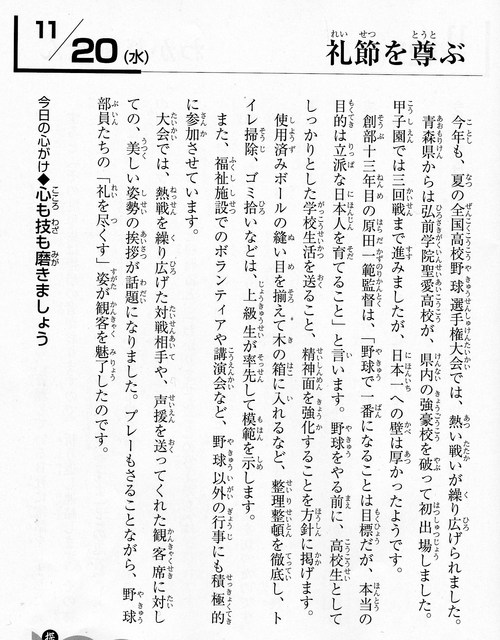 11/20(水)
礼節を尊ぶ
今年も、夏の全国高校野球選手権大会では、熱い戦いが繰り広げられました。
青森県からは弘前学院聖愛高校が、県内の強豪校を破って初出場しました。
甲子園では三回戦まで進みましたが、日本一への壁は厚かったようです。
創部十三年目の原田一範監督は、「野球で一番になることは目標だが、本当の
目的は立派な日本人を育てること」と言います。野球をやる前に、高校生として
しっかりとした学校生活を送ること、精神面を強化することを方針に掲げます。
使用済みボールの縫い目を揃えて木の箱に入れるなど、整理整頓を徹底し、ト
イレ掃除、ゴミ拾いなどは、上級生が率先して模範を示します。
また、福祉施設でのボランティアや講演会など、野球以外の行事にも積極的
に参加させています。
大会では、熱戦を繰り広げた対戦相手や、声援を送ってくれた観客席に対し
ての、美しい姿勢の挨拶が話題になりました。プレーもさることながら、野球
部員たちの「礼を尽くす」姿が観客を魅了したのです。
今日の心がけ◆心も技も磨きましょう